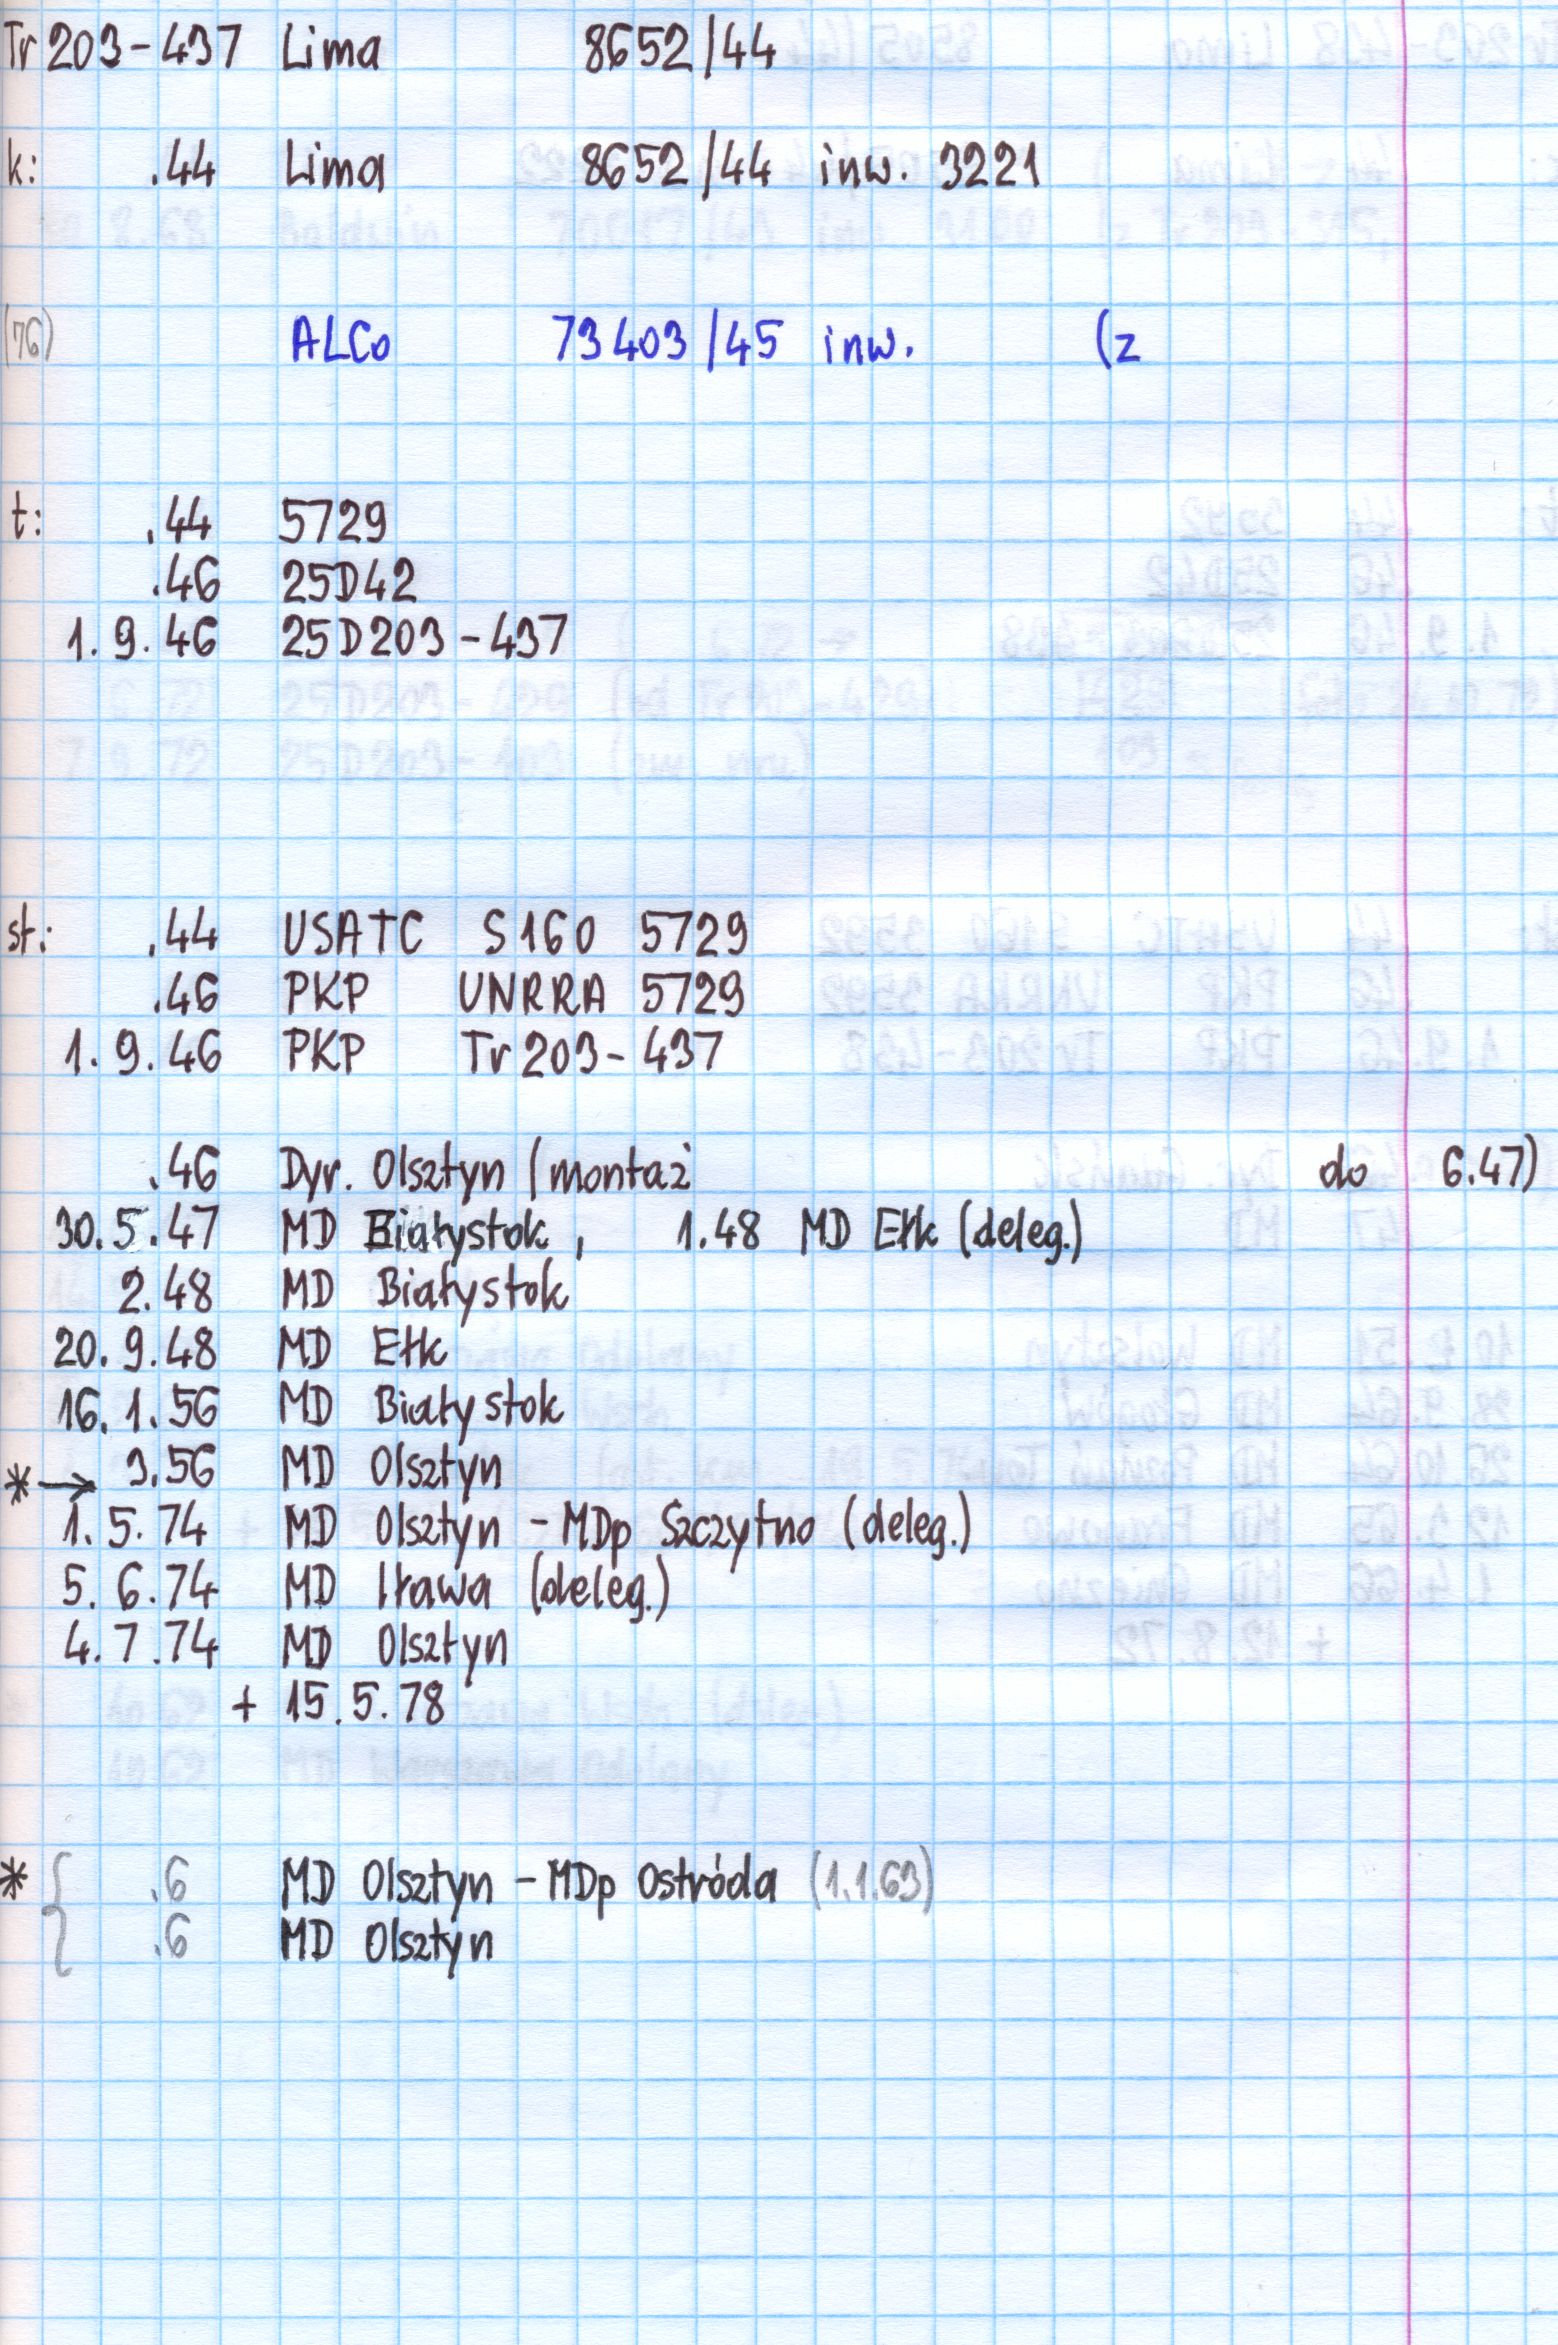 Tr 203-437 Lima 8652/44
k: .44 Lima 8652/44 inw. 3221
(76) ALCo 73403/45 inw. (z
t: .44 5729
.46 25D42
1.9.46 25D203-437
st: .44 USATC S160 5729
.46 PKP UNRRA 5729
1.9.46 PKP Tr 203-437
.46 Dyr. Olsztyn (montaż do 6.47)
30.5.47 MD Białystok, 1.48 MD Ełk (deleg.)
2.48 MD Białystok
20.9.48 MD Ełk
16.1.56 MD Białystok
*→ 3.56 MD Olsztyn
1.5.74 MD Olsztyn - MDp Szczytno (deleg.)
5.6.74 MD Iława (deleg.)
4.7.74 MD Olsztyn
+ 15.5.78
* { .6 MD Olsztyn - MDp Ostróda (1.1.63)
.6 MD Olsztyn